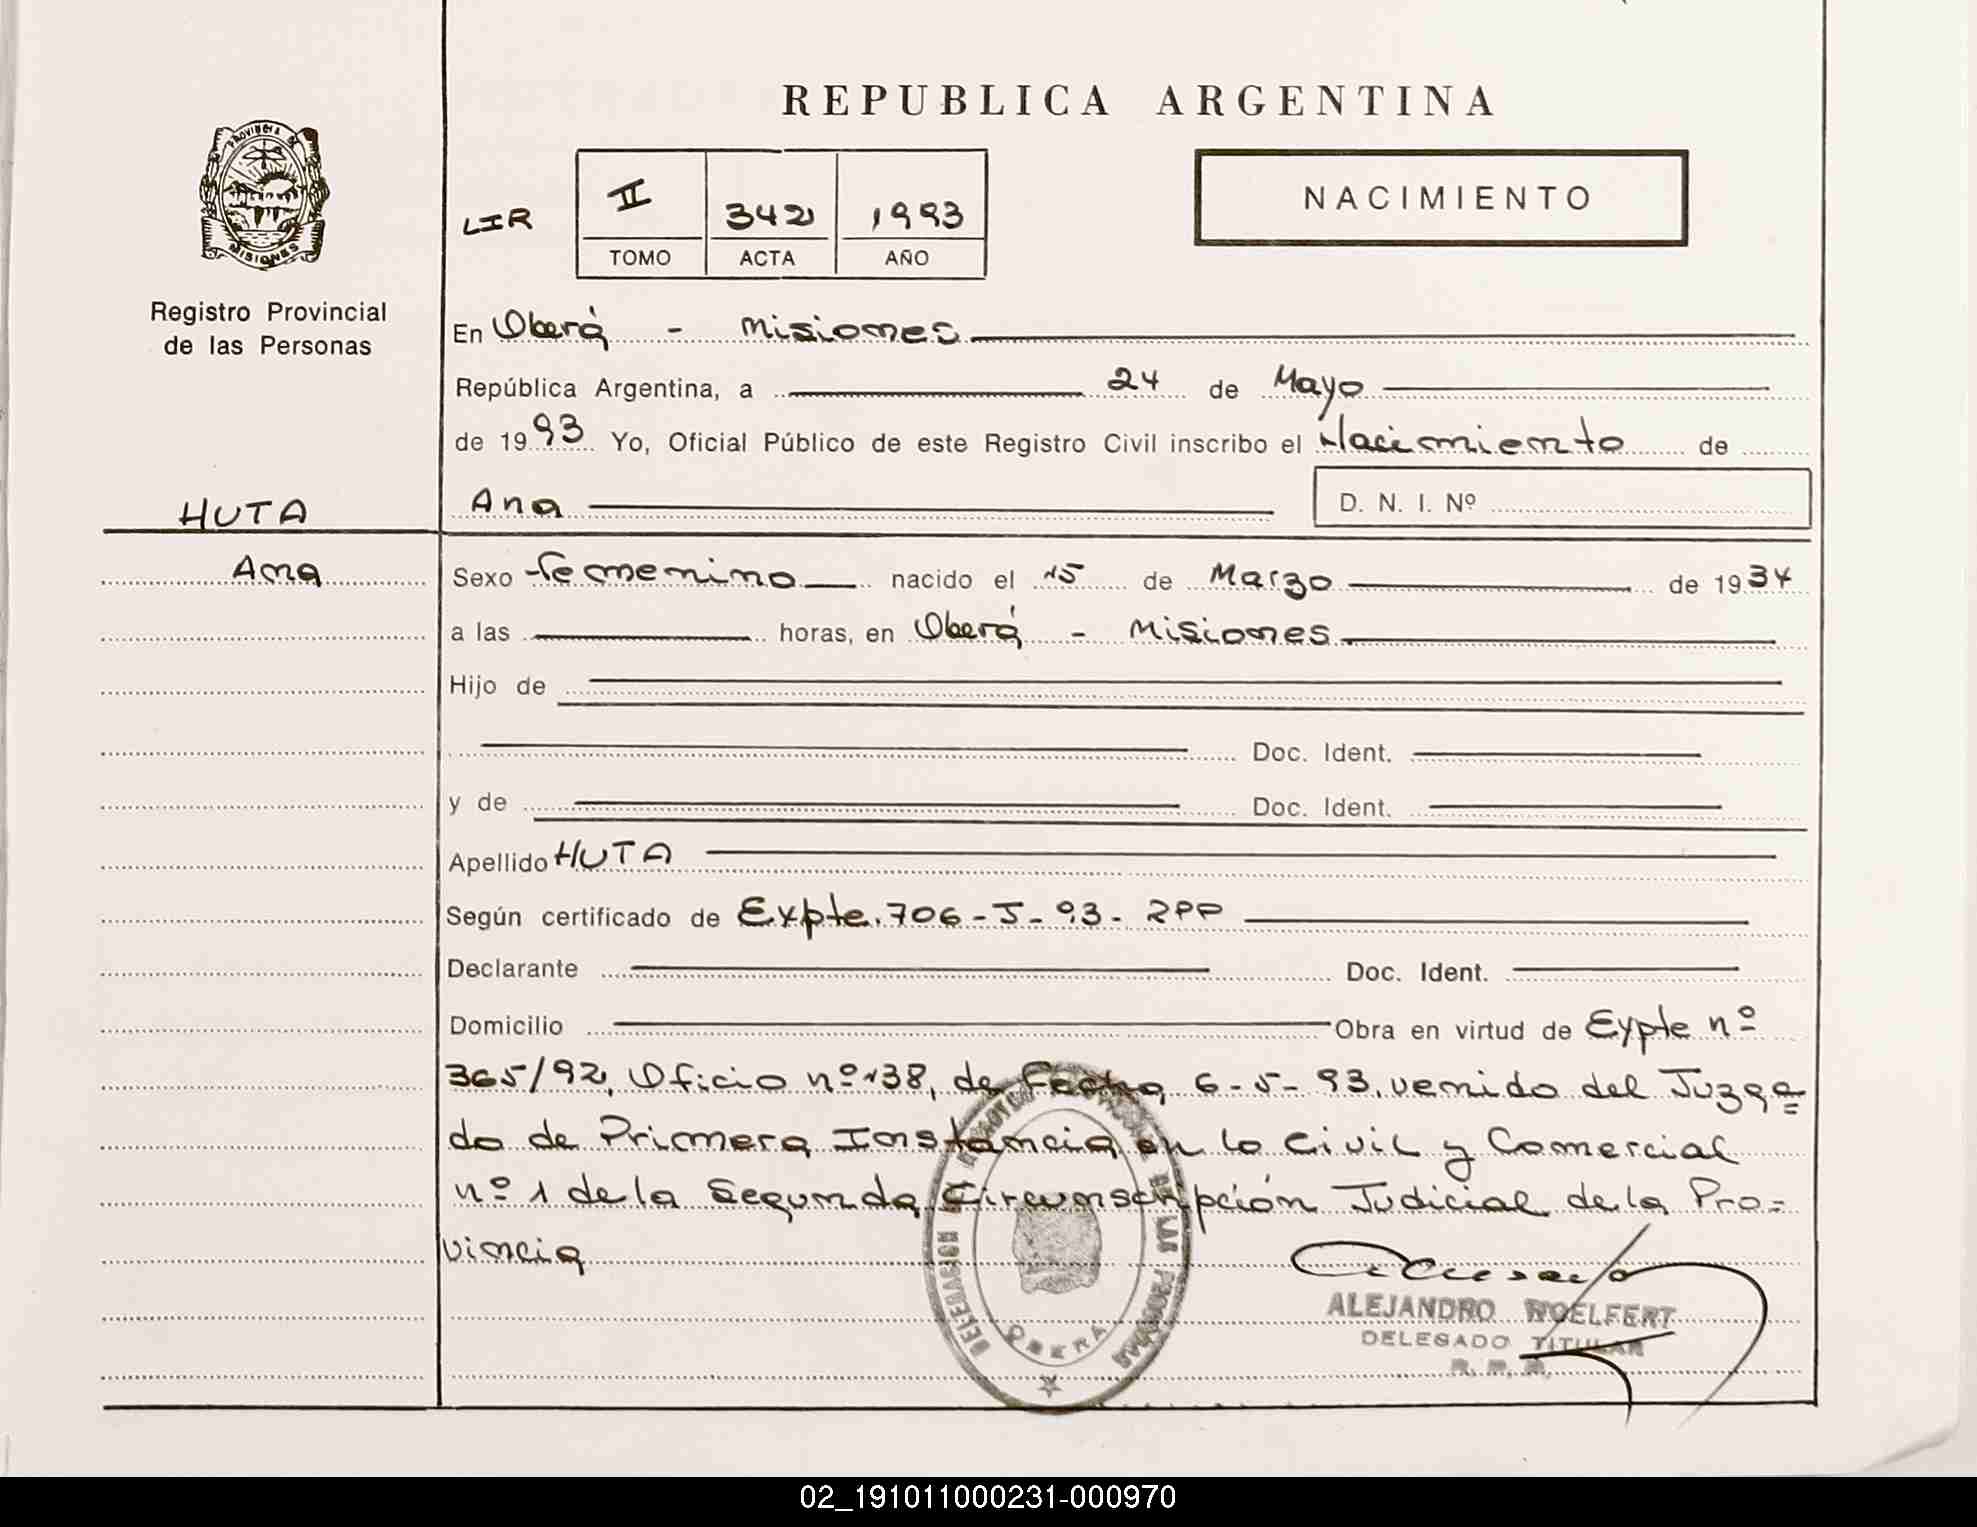 REPUBLICA ARGENTINA
PROVINCIA DE
MISIONES
Registro Provincial
de las Personas
LIR
II 342 1993
TOMO ACTA AÑO
NACIMIENTO
En Oberá - Misiones
República Argentina, a 24 de Mayo
de 1993 Yo, Oficial Público de este Registro Civil inscribo el Nacimiento de
HUTA
Ana
Ana D. N. I. Nº
Sexo femenino nacido el 15 de Marzo de 1934
a las horas, en Oberá - Misiones
Hijo de
Doc. Ident.
y de Doc. Ident.
Apellido HUTA
Según certificado de Expte. 706-J-93- RPP
Declarante Doc. Ident.
Domicilio Obra en virtud de Expte nº
365/92, Oficio nº 138, de Fecha 6-5-93, venido del Juzga=
do de Primera Instancia en lo Civil y Comercial
nº 1 de la Segunda Circunscripción Judicial de la Pro=
vincia
DELEGACION DEL REGISTRO PROVINCIAL DE LAS PERSONAS
OBERA
ALEJANDRO WOELFERT
DELEGADO TITULAR
02_191011000231-000970